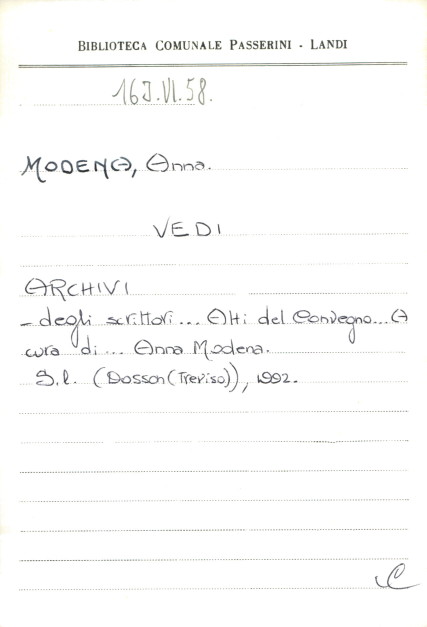 BIBLIOTECA COMUNALE PASSERINI - LANDI
16J.VI.58.
MODENA, Anna.
VEDI
ARCHIVI
- degli scrittori... Atti del Convegno... A
cura di... Anna Modena.
S.l. (Dosson (Treviso)), 1992.
C